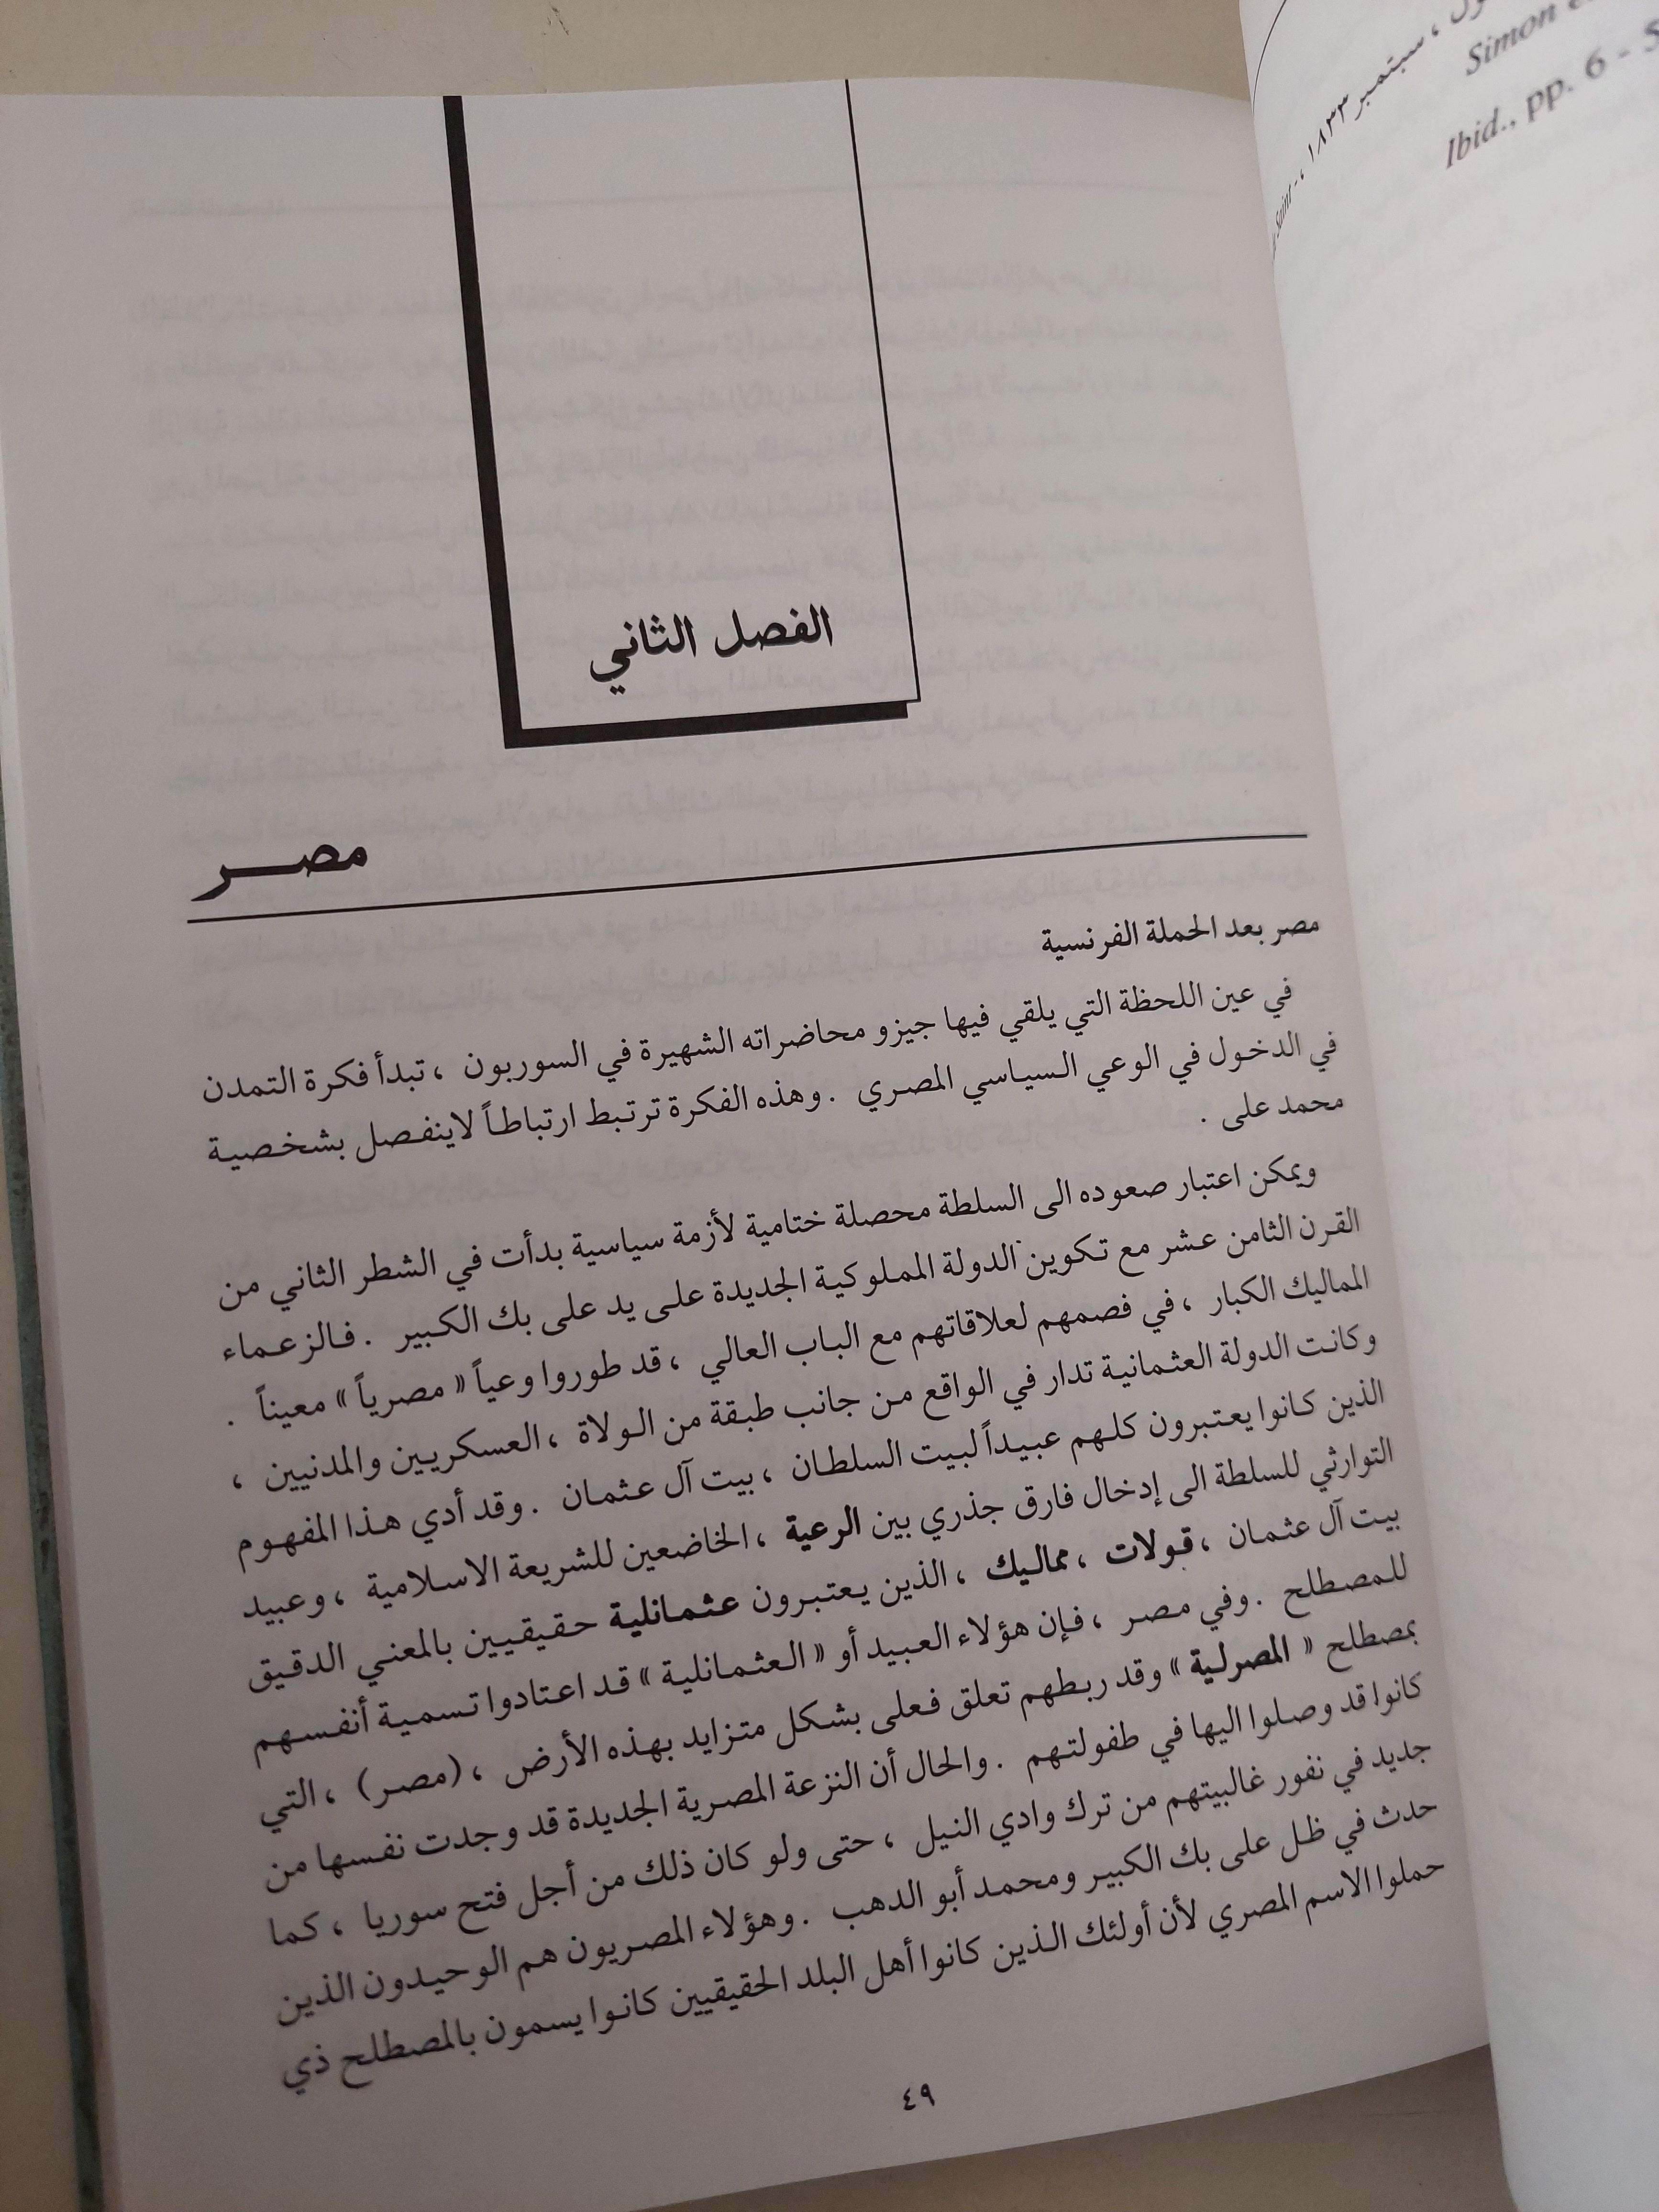 الفصل الثاني
مصـــر
مصر بعد الحملة الفرنسية
في عين اللحظة التي يلقي فيها جيزو محاضراته الشهيرة في السوربون ، تبدأ فكرة التمدن
في الدخول في الوعي السياسي المصري . وهذه الفكرة ترتبط ارتباطاً لاينفصل بشخصية
محمد على .
ويمكن اعتبار صعوده الى السلطة محصلة ختامية لأزمة سياسية بدأت في الشطر الثاني من
القرن الثامن عشر مع تكوين الدولة المملوكية الجديدة على يد على بك الكبير . فالزعماء
المماليك الكبار ، في فصمهم لعلاقاتهم مع الباب العالي ، قد طوروا وعياً « مصرياً » معيناً .
وكانت الدولة العثمانية تدار في الواقع من جانب طبقة من الولاة ، العسكريين والمدنيين ،
الذين كانوا يعتبرون كلهم عبيداً لبيت السلطان ، بيت آل عثمان . وقد أدي هذا المفهوم
التوارثي للسلطة الى إدخال فارق جذري بين الرعية ، الخاضعين للشريعة الاسلامية ، وعبيد
بيت آل عثمان ، قولات ، مماليك ، الذين يعتبرون عثمانلية حقيقيين بالمعني الدقيق
للمصطلح . وفي مصر ، فإن هؤلاء العبيد أو « العثمانلية » قد اعتادوا تسمية أنفسهم
بمصطلح « المصرلية » وقد ربطهم تعلق فعلى بشكل متزايد بهذه الأرض ، (مصر) ، التي
كانوا قد وصلوا اليها في طفولتهم . والحال أن النزعة المصرية الجديدة قد وجدت نفسها من
جديد في نفور غالبيتهم من ترك وادي النيل ، حتى ولو كان ذلك من أجل فتح سوريا ، كما
حدث في ظل على بك الكبير ومحمد أبو الدهب . وهؤلاء المصريون هم الوحيدون الذين
حملوا الاسم المصري لأن أولئك الذين كانوا أهل البلد الحقيقيين كانوا يسمون بالمصطلح ذي
٤٩
، سبتمبر ١٨٣٣ ،
Simon
Ibid., pp. 6 -